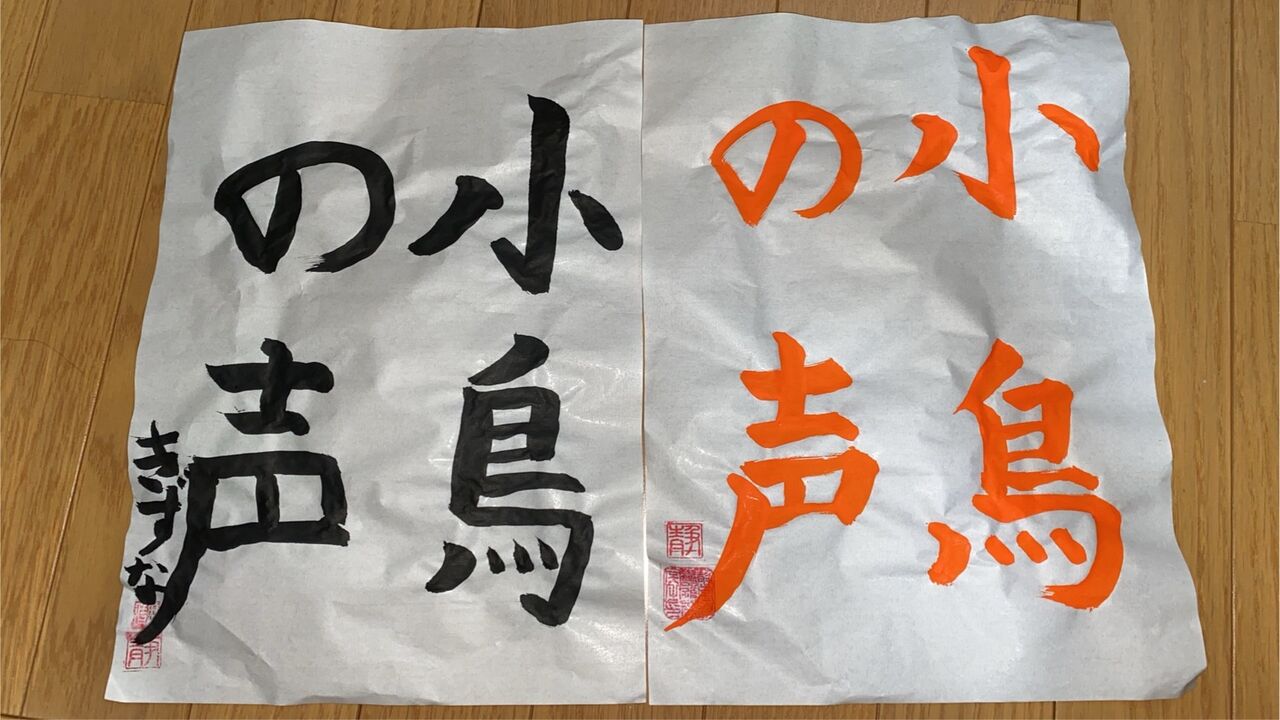 小鳥
の声
静
小鳥
の声
きずな
静